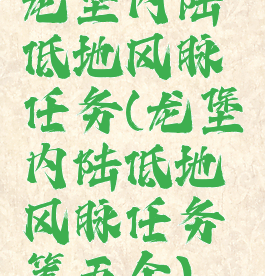 龙堡内陆
低地风脉
任务(龙堡
内陆低地
风脉任务
第五个)